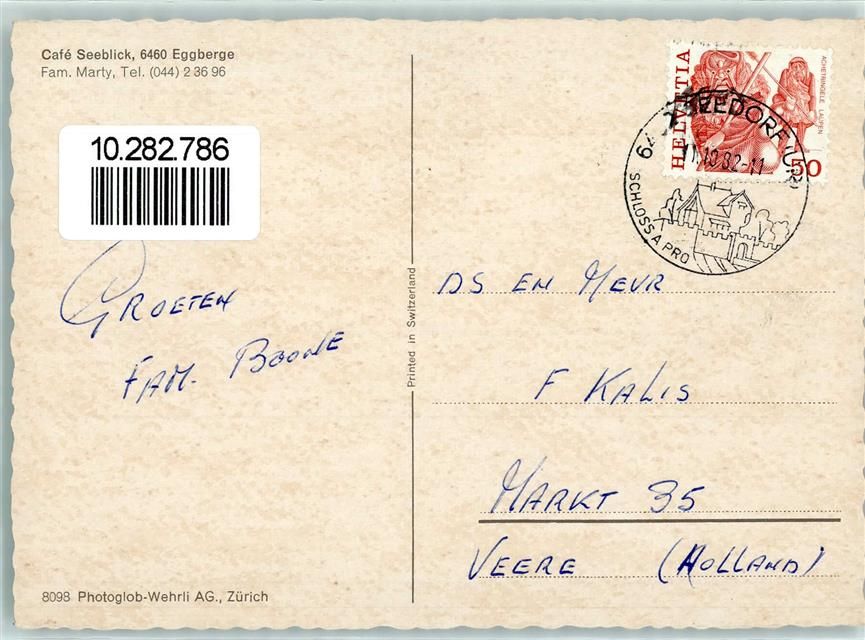 Café Seeblick, 6460 Eggberge
Fam. Marty, Tel. (044) 2 36 96
10.282.786
GROETEN
FAM. BOONE
8098 Photoglob-Wehrli AG., Zürich
Printed in Switzerland
HELVETIA
ACHETRINGELE LAUPEN
50
SEEDORF (UR)
11.10.82-11
SCHLOSS A PRO
DS EN MEVR
F KALIS
MARKT 35
VEERE (HOLLAND)